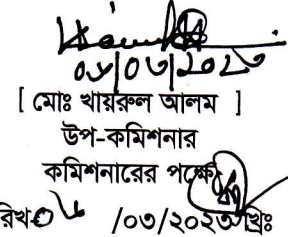 ০৮/০৩/২০২৩
[ মোঃ খায়রুল আলম ]
উপ-কমিশনার
কমিশনারের পক্ষে
রিখ-০৮ /০৩/২০২৩ খ্রিঃ